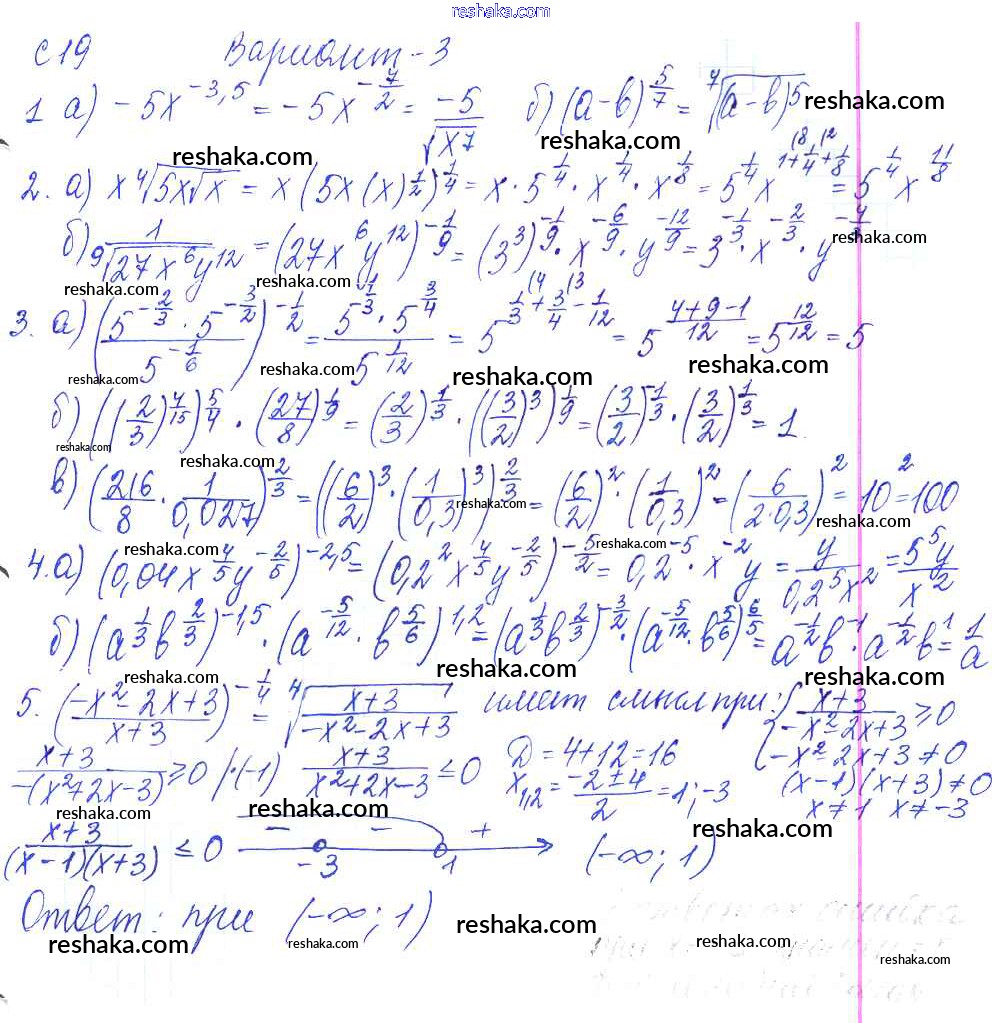 reshaka.com
С 19 Вариант-3
1 а) -5x^{-3,5} = -5x^{-7/2} = -5/√(x^7) б) (a-b)^{5/7} = ⁷√((a-b)^5) reshaka.com
reshaka.com reshaka.com
2. а) x ⁴√(5x√x) = x(5x(x)^{1/2})^{1/4} = x · 5^{1/4} · x^{1/4} · x^{1/8} = 5^{1/4} x^{1+1/4+1/8} = 5^{1/4} x^{11/8}
б) 1/⁹√(27x^6y^{12}) = (27x^6y^{12})^{-1/9} = (3^3)^{-1/9} · x^{-6/9} · y^{-12/9} = 3^{-1/3} · x^{-2/3} · y^{-4/3} reshaka.com
reshaka.com reshaka.com
3. а) ((5^{-2/3} · 5^{-3/2})/5^{-1/6})^{-1/2} = (5^{1/3} · 5^{3/4})/5^{1/12} = 5^{1/3+3/4-1/12} = 5^{(4+9-1)/12} = 5^{12/12} = 5
reshaka.com reshaka.com reshaka.com reshaka.com
б) ((2/3)^{4/15})^{5/4} · (27/8)^{1/9} = (2/3)^{1/3} · ((3/2)^3)^{1/9} = (3/2)^{-1/3} · (3/2)^{1/3} = 1
reshaka.com reshaka.com
в) (216/8 · 1/0,027)^{2/3} = ((6/2)^3 · (1/0,3)^3)^{2/3} = (6/2)^2 · (1/0,3)^2 = (6/(2·0,3))^2 = 10^2 = 100
reshaka.com reshaka.com
reshaka.com reshaka.com reshaka.com
4. а) (0,04x^{4/5}y^{-2/5})^{-2,5} = (0,2^2x^{4/5}y^{-2/5})^{-5/2} = 0,2^{-5} · x^{-2}y = y/(0,2^5x^2) = 5^5y/x^2
reshaka.com
б) (a^{1/3}b^{2/3})^{-1,5} · (a^{-5/12} · b^{5/6})^{1,2} = (a^{1/3}b^{2/3})^{-3/2} · (a^{-5/12} · b^{5/6})^{6/5} = a^{-1/2}b^{-1} · a^{-1/2}b^1 = 1/a
reshaka.com reshaka.com
5. ((-x^2-2x+3)/(x+3))^{-1/4} = ⁴√((x+3)/(-x^2-2x+3)) имеет смысл при: { (x+3)/(-x^2-2x+3) ≥ 0
-x^2-2x+3 ≠ 0
(x+3)/(-(x^2+2x-3)) ≥ 0 /·(-1) (x+3)/(x^2+2x-3) ≤ 0 Д = 4+12 = 16
x_{1,2} = (-2±4)/2 = 1; -3 (x-1)(x+3) ≠ 0
x ≠ 1 x ≠ -3
reshaka.com reshaka.com reshaka.com
(x+3)/((x-1)(x+3)) ≤ 0 - - + -3 1 (-∞; 1)
Ответ: при (-∞; 1)
reshaka.com reshaka.com reshaka.com reshaka.com